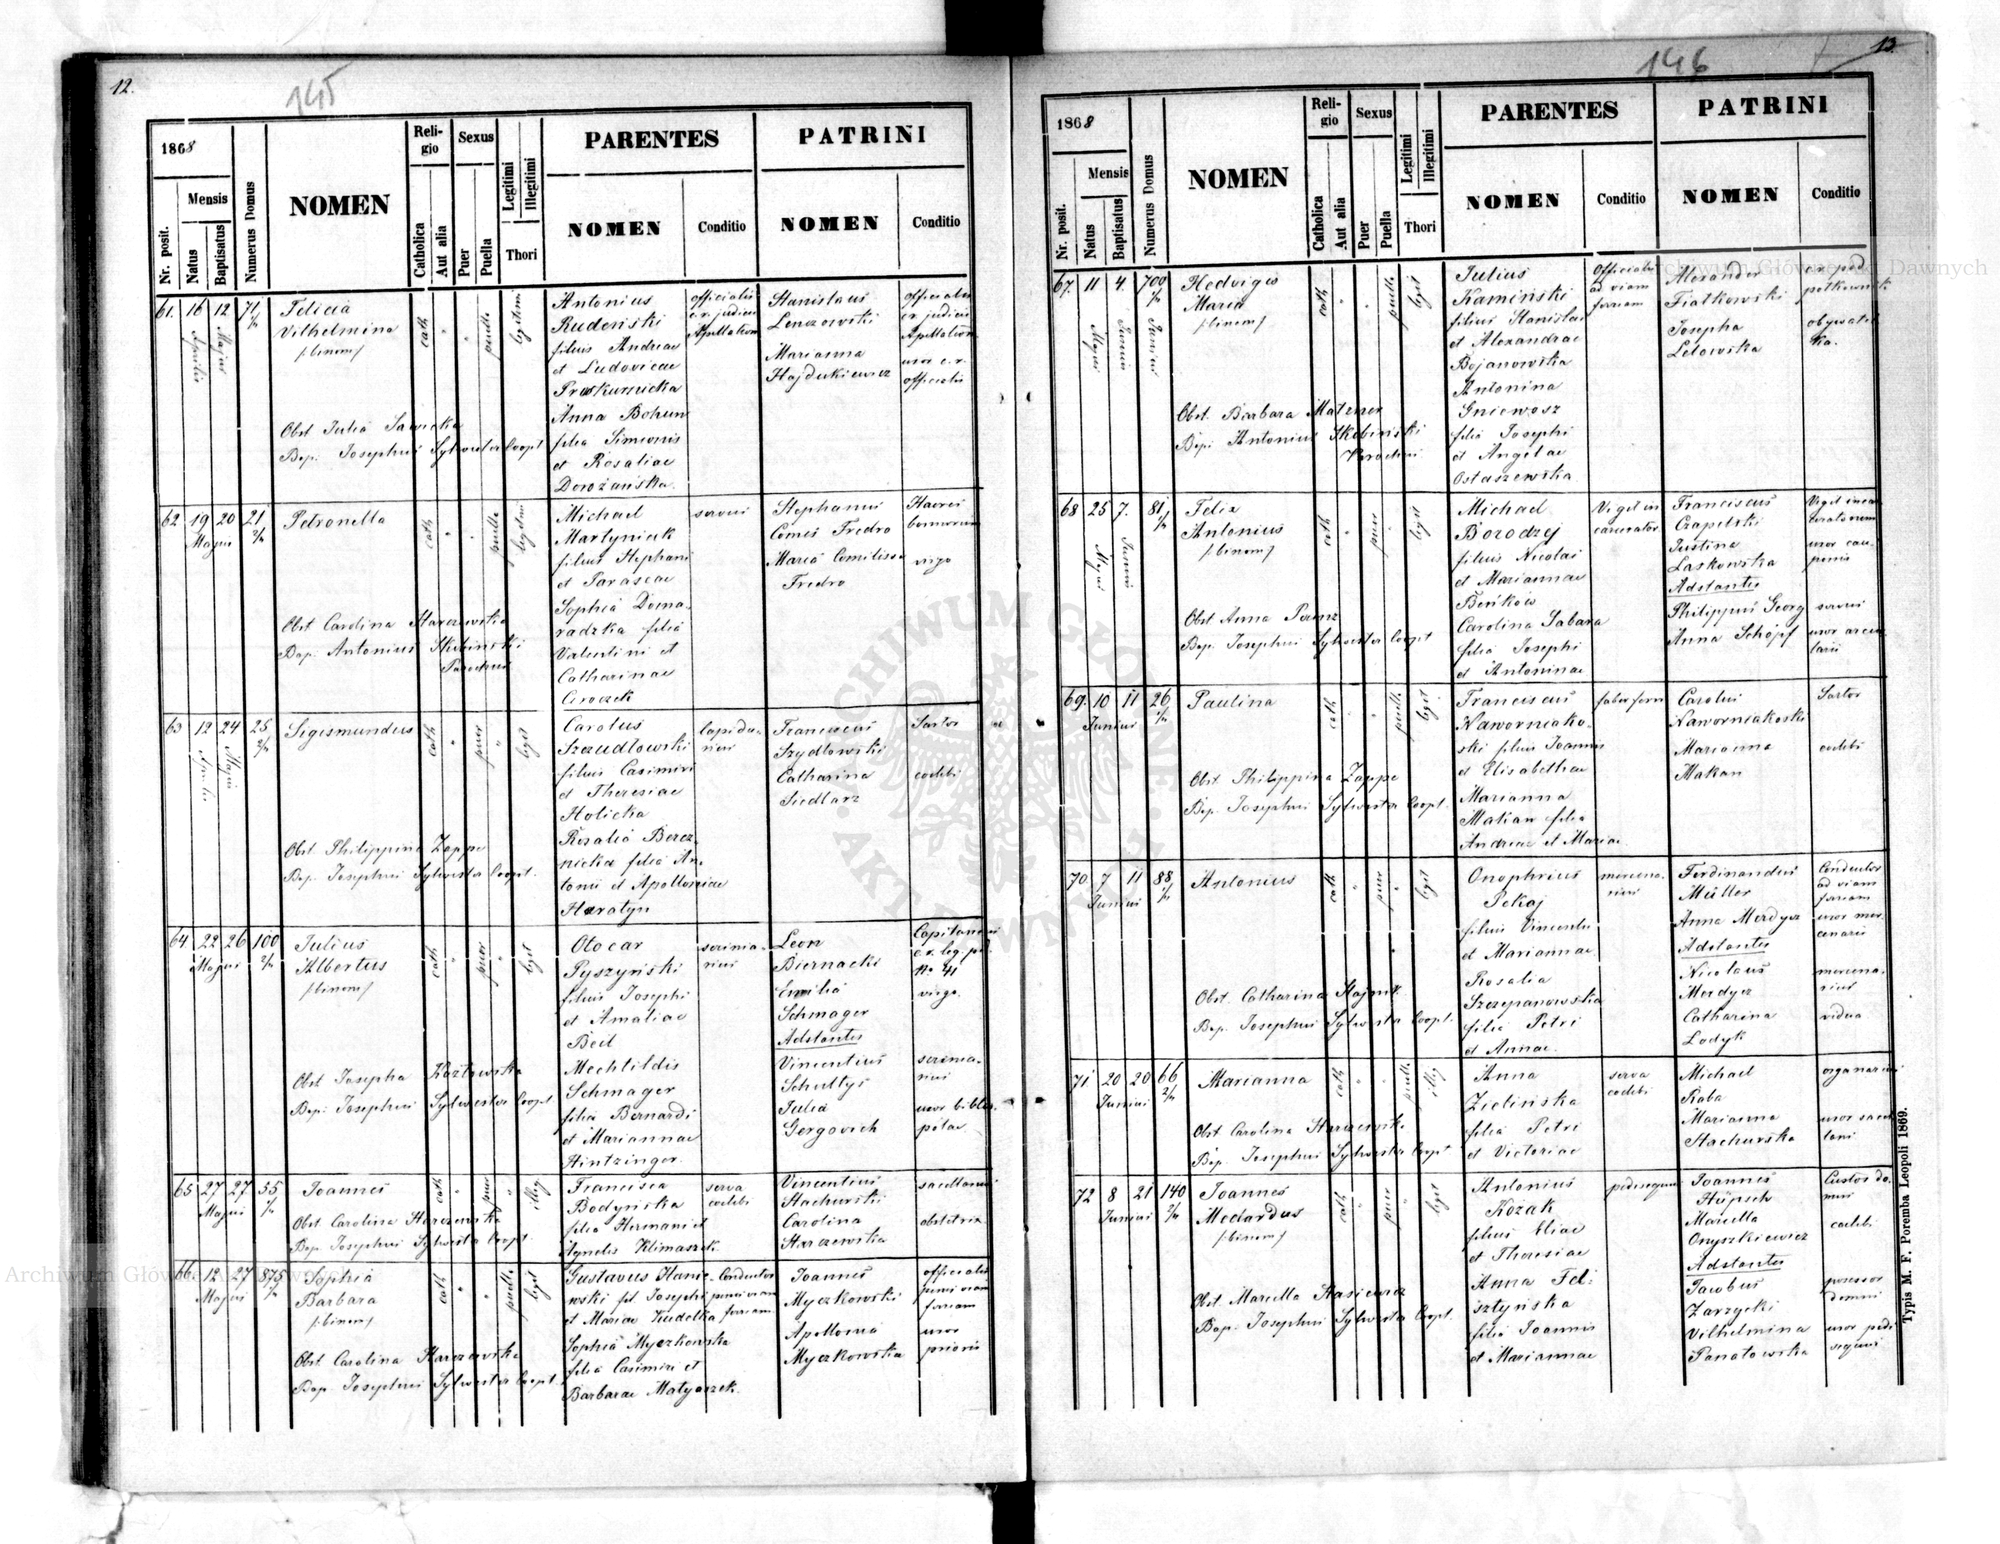 12.
145
1868
Nr. posit.
Mensis
Natus
Baptisatus
Numerus Domus
NOMEN
Religio
Catholica
Aut alia
Sexus
Puer
Puella
Legitimi
Illegitimi
Thori
PARENTES
NOMEN
Conditio
PATRINI
NOMEN
Conditio
61. 16 12 71
Aprilis
Majus
Felicia
Vilhelmina
/:binom:/
Obst. Julia Sawicka
Bap. Josephus Sylwester Coopt.
cath
puella
legitimi
Antonius
Rudeński
filius Andreae
et Ludovicae
Proskurnicka
Anna Bohun
filia Simeonis
et Rosaliae
Dorożańska.
officialis
c.r. judicii
Apellation
Stanislaus
Lenczowski
Marianna
Hajdukiewicz
officialis
c.r. judicii
Apellation
uxor c.r.
officialis
62 19 20 21 2/4
Majus
Petronella
Obst. Carolina Starczewska
Bap. Antonius Skubinski
Parochus
cath
puella
legitimi
Michael
Martyniak
filius Stephani
et Parascae
Sophia Doma-
radzka filia
Valentini et
Catharinae
Groczek
servus
Stephanus
Comes Fredro
Maria Comitissa
Fredro
Haeres
bonorum
virgo
63 12 24 25 2/4
Majus
Sigismundus
Obst. Philippina Zappe
Bap. Josephus Sylwester Coopt.
cath
puer
legit
Carolus
Szaudlowski
filius Casimiri
et Theresiae
Holicka
Rosalia Berez-
nicka filia An-
tonii et Apolloniae
Haratyn
lapida-
rius
Franciscus
Szydlowski
Catharina
Siedlarz
Sartor
caelebs
64 22 26 100 2/4
Majus
Julius
Albertus
/:binom:/
Obst. Josepha Kozłowska
Bap. Josephus Sylwester Coopt
cath
puer
legit
Otocar
Pyszyński
filius Josephi
et Amaliae
Beil
Mechtildis
Schmager
filia Bernardi
et Mariannae
Hintzinger.
scrinia-
rius
Leon
Biernacki
Emilia
Schmager
Adstantes
Vincentius
Schultys
Julia
Gergovich
Capitaneus
c.r. leg. ped.
No. 41
virgo.
scrinia-
rius
uxor biblio-
polae
65 27 27 55 1/4
Majus
Joannes
Obst. Carolina Starczewska
Bap. Josephus Sylwester Coopt.
cath
puer
illeg
Francisca
Bodyńska
filia Hermani et
Agnetis Klimaszek
serva
caelebs
Vincentius
Stachurski
Carolina
Starczewska
sacellanus
obstetrix
66. 12 27 875 1/4
Majus
Sophia
Barbara
/:binom:/
Obst. Carolina Starczewska
Bap. Josephus Sylwester Coopt.
cath
puella
legit
Gustavus Hanie-
wski fil. Josephi
et Mariae Kudelka
Sophia Myczkowska
filia Casimiri et
Barbarae Matyaszek.
Conductor
penes viam
ferream
Joannes
Myczkowski
Apollonia
Myczkowska
officialis
penes viam
ferream
uxor
prioris
13.
146
1868
Nr. posit.
Mensis
Natus
Baptisatus
Numerus Domus
NOMEN
Religio
Catholica
Aut alia
Sexus
Puer
Puella
Legitimi
Illegitimi
Thori
PARENTES
NOMEN
Conditio
PATRINI
NOMEN
Conditio
67. 11 4. 700
Majus
Junius
Hedvigis
Maria
/:binom:/
Obst. Barbara Matzner
Bap. Antonius Skubiński
Parochus
cath
puella
legit
Julius
Kamiński
filius Stanislai
et Alexandrae
Bojanowska
Antonina
Gniewosz
filia Josephi
et Angelae
Ostaszewska
Officialis
ad viam
ferream
Alexander
Fiałkowski
Josepha
Letowska
obywatel
ka.
68 25 7. 81
Majus
Junius
Felix
Antonius
/:binom:/
Obst. Anna Perenz
Bap. Josephus Sylwester Coopt
cath
puer
legit
Michael
Borodzej
filius Nicolai
et Mariannae
Beńków
Carolina Sabara
filia Josephi
et Antoninae
Vigil in
carcerator
Franciscus
Czapelski
Justina
Laskowska
Adstantes
Philippus Georg
Anna Schöpf
Vigil incar-
ceratorum
uxor cau-
ponis
servus
uxor arcu-
larii
69. 10 11 26
Junius
Paulina
Obst. Philippina Zappe
Bap. Josephus Sylwester Coopt.
cath
puella
legit.
Franciscus
Nawroniako-
ski filius Joannis
et Elisabethae
Marianna
Makan filia
Andreae et Mariae
faber ferri
Carolus
Nawroniakoski
Marianna
Makan
Sartor
caelebs
70. 7 11 88
Junius
Antonius
Obst. Catharina Stajouk
Bap. Josephus Sylwester Coopt.
cath
puer
legit
Onophrius
Pekaj
filius Vincentii
et Mariannae
Rosalia
Szczepanowska
filia Petri
et Annae.
mercena-
rius
Ferdinandus
Müller
Anna Merdycz
Adstantes
Nicolaus
Merdycz
Catharina
Lodyk
Conductor
ad viam
ferream
uxor mer-
cenarii
mercena-
rius
vidua
71 20 20 66 2/4
Junius
Marianna
Obst. Carolina Starczewska
Bap. Josephus Sylwester Coopt
cath
puella
illeg
Anna
Zielińska
filia Petri
et Victoriae
serva
caelebs
Michael
Raba
Marianna
Stachurska
organarius
uxor sacel-
lani
72 8 21 140 2/4
Junius
Joannes
Medardus
/:binom:/
Obst. Marcella Stasiewicz
Bap. Josephus Sylwester Coopt.
cath
puer
legit
Antonius
Kozak
filius Eliae
et Theresiae
Anna Feli-
sztyńska
filia Joannis
et Mariannae
pedisequus
Joannes
Hüpsch
Marcella
Onyszkiewicz
Adstantes
Jacobus
Zarzycki
Vilhelmina
Panatowska
Custos do-
mus
caelebs
possessor
domus
uxor pedi
sequi
Typis M. F. Poremba Leopoli 1869.
Archiwum Główne Akt Dawnych
ARCHIWUM GŁÓWNE AKT DAWNYCH